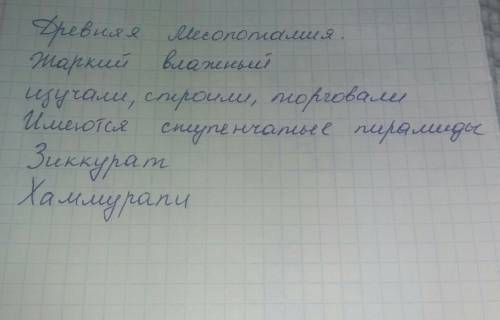 Древняя Месопотамия.
Жаркий влажный
изучали, строили, торговали
Имеются ступенчатые пирамиды
Зиккурат
Хаммурапи